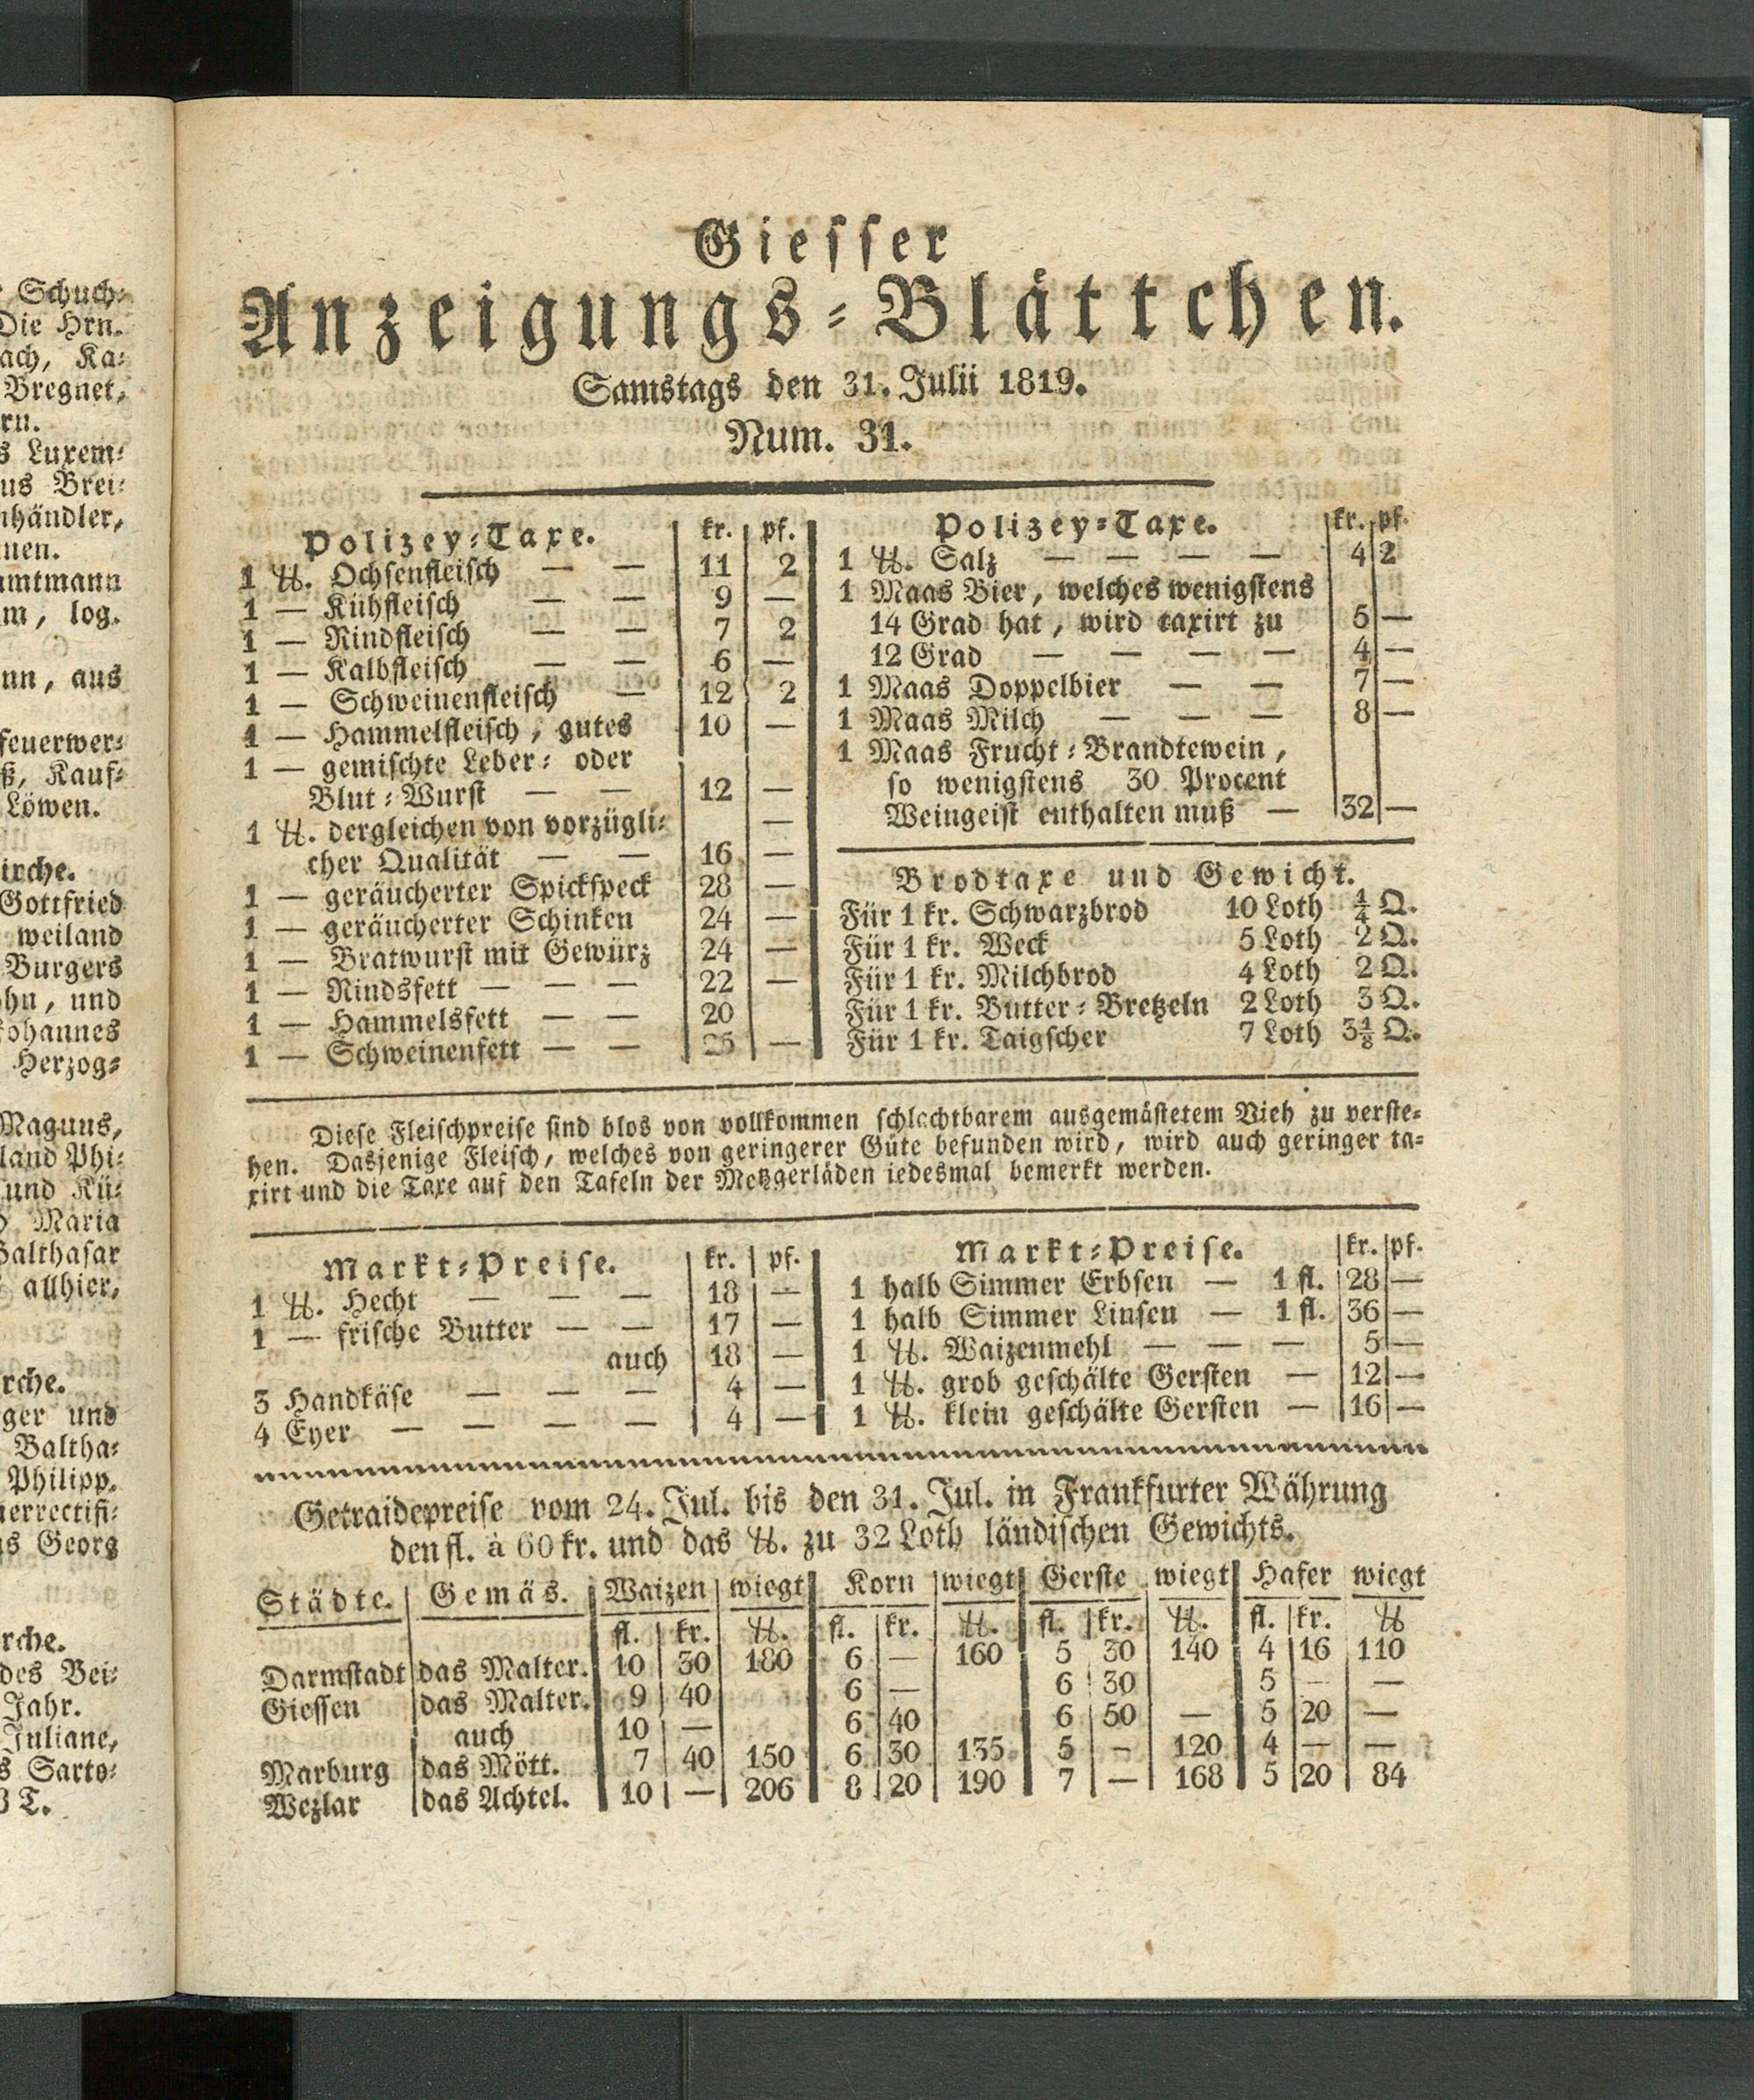 Schuch⸗
Die Hrn.
ach, Ka⸗
Bregnet,
rn.
s Luxem⸗
us Brei⸗
nhändler,
nen.
amtmann
m, log.
nn, aus
feuerwer⸗
ß, Kauf⸗
Löwen.
irche.
Gottfried
weiland
Burgers
ohn, und
Johannes
Herzog⸗
Magnus,
land Phi⸗
und Kü⸗
Maria
Balthasar
allhier,
rche.
ger und
Baltha⸗
Philipp.
uerrectifi⸗
as Georg
rche.
des Bei⸗
Jahr.
Juliane,
s Sarto⸗
3 T.
Giesser
Anzeigungs⸗Blättchen.
Samstags den 31. Julii 1819.
Num. 31.
Polizey⸗Taxe. kr. pf.
1 ℔. Ochsenfleisch — — 11 2
1 — Kühfleisch — — 9 —
1 — Rindfleisch — — 7 2
1 — Kalbfleisch — — 6 —
1 — Schweinenfleisch — 12 2
1 — Hammelfleisch, gutes 10 —
1 — gemischte Leber⸗ oder
Blut⸗Wurst — — 12 —
1 ℔. dergleichen von vorzügli⸗ —
cher Qualität — — 16 —
1 — geräucherter Spickspeck 28 —
1 — geräucherter Schinken 24 —
1 — Bratwurst mit Gewürz 24 —
1 — Rindsfett — — — 22 —
1 — Hammelsfett — — 20
1 — Schweinenfett — — 25 —
Polizey⸗Taxe. kr. pf.
1 ℔. Salz — — — — 4 2
1 Maas Bier, welches wenigstens
14 Grad hat, wird taxirt zu 5 —
12 Grad — — — — 4 —
1 Maas Doppelbier — — 7 —
1 Maas Milch — — — 8 —
1 Maas Frucht⸗Brandtewein,
so wenigstens 30 Procent
Weingeist enthalten muß — 32 —
Brodtaxe und Gewicht.
Für 1 kr. Schwarzbrod 10 Loth ¼ Q.
Für 1 kr. Weck 5 Loth 2 Q.
Für 1 kr. Milchbrod 4 Loth 2 Q.
Für 1 kr. Butter⸗Bretzeln 2 Loth 3 Q.
Für 1 kr. Taigscher 7 Loth 3⅛ Q.
Diese Fleischpreise sind blos von vollkommen schlachtbarem ausgemästetem Vieh zu verste⸗
hen. Dasjenige Fleisch, welches von geringerer Güte befunden wird, wird auch geringer ta⸗
xirt und die Taxe auf den Tafeln der Metzgerläden iedesmal bemerkt werden.
Markt⸗Preise. kr. pf.
1 ℔. Hecht — — — 18 —
1 — frische Butter — — 17 —
auch 18 —
3 Handkäse — — — 4 —
4 Eyer — — — — 4 —
Markt⸗Preise. kr. pf.
1 halb Simmer Erbsen — 1 fl. 28 —
1 halb Simmer Linsen — 1 fl. 36 —
1 ℔. Waizenmehl — — — 5 —
1 ℔. grob geschälte Gersten — 12 —
1 ℔. klein geschälte Gersten — 16 —
Getraidepreise vom 24. Jul. bis den 31. Jul. in Frankfurter Währung
den fl. à 60 kr. und das ℔. zu 32 Loth ländischen Gewichts.
Städte. Gemäs. Waizen wiegt Korn wiegt Gerste wiegt Hafer wiegt
fl. kr. ℔. fl. kr. ℔. fl. kr. ℔. fl. kr. ℔
Darmstadt das Malter. 10 30 180 6 — 160 5 30 140 4 16 110
Giessen das Malter. 9 40 6 — 6 30 5 — —
auch 10 — 6 40 6 50 — 5 20 —
Marburg das Mött. 7 40 150 6 30 135 5 — 120 4 — —
Wezlar das Achtel. 10 — 206 8 20 190 7 — 168 5 20 84